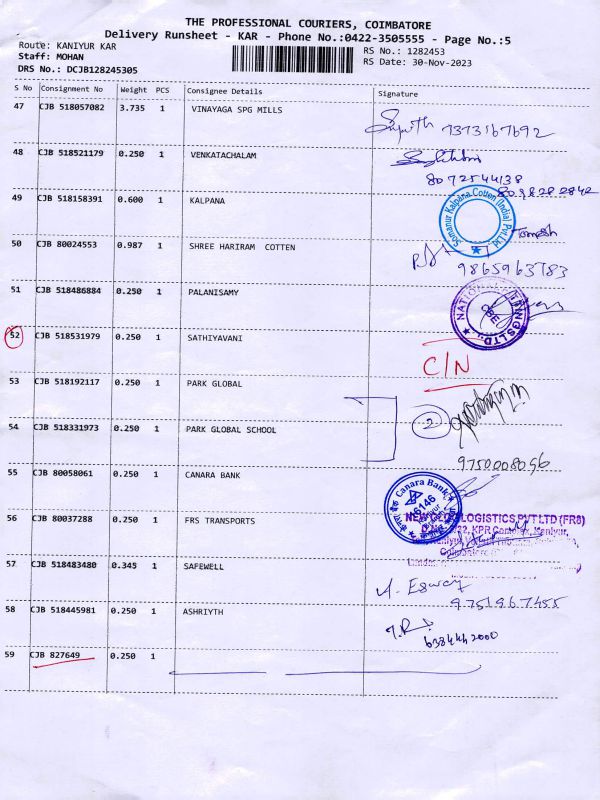 THE PROFESSIONAL COURIERS, COIMBATORE
Delivery Runsheet - KAR - Phone No.:0422-3505555 - Page No.:5
Route: KANIYUR KAR
RS No.: 1282453
Staff: MOHAN
RS Date: 30-Nov-2023
DRS No.: DCJB128245305
S No Consignment No Weight PCS Consignee Details Signature
47 CJB 518057082 3.735 1 VINAYAGA SPG MILLS
7373167692
48 CJB 518521179 0.250 1 VENKATACHALAM
8072544138
49 CJB 518158391 0.600 1 KALPANA
Somanur Kalpana Cotten (India) Pvt Ltd
50 CJB 80024553 0.987 1 SHREE HARIRAM COTTEN
9865963783
51 CJB 518486884 0.250 1 PALANISAMY
NATIONAL
CBE
52 CJB 518531979 0.250 1 SATHIYAVANI
C/N
53 CJB 518192117 0.250 1 PARK GLOBAL
2
54 CJB 518331973 0.250 1 PARK GLOBAL SCHOOL
9750008096
55 CJB 80058061 0.250 1 CANARA BANK
Canara Bank
56 CJB 80037288 0.250 1 FRS TRANSPORTS
LOGISTICS PVT LTD (FR8)
57 CJB 518483480 0.345 1 SAFEWELL
9751967455
58 CJB 518445981 0.250 1 ASHRIYTH
6384442000
59 CJB 827649 0.250 1